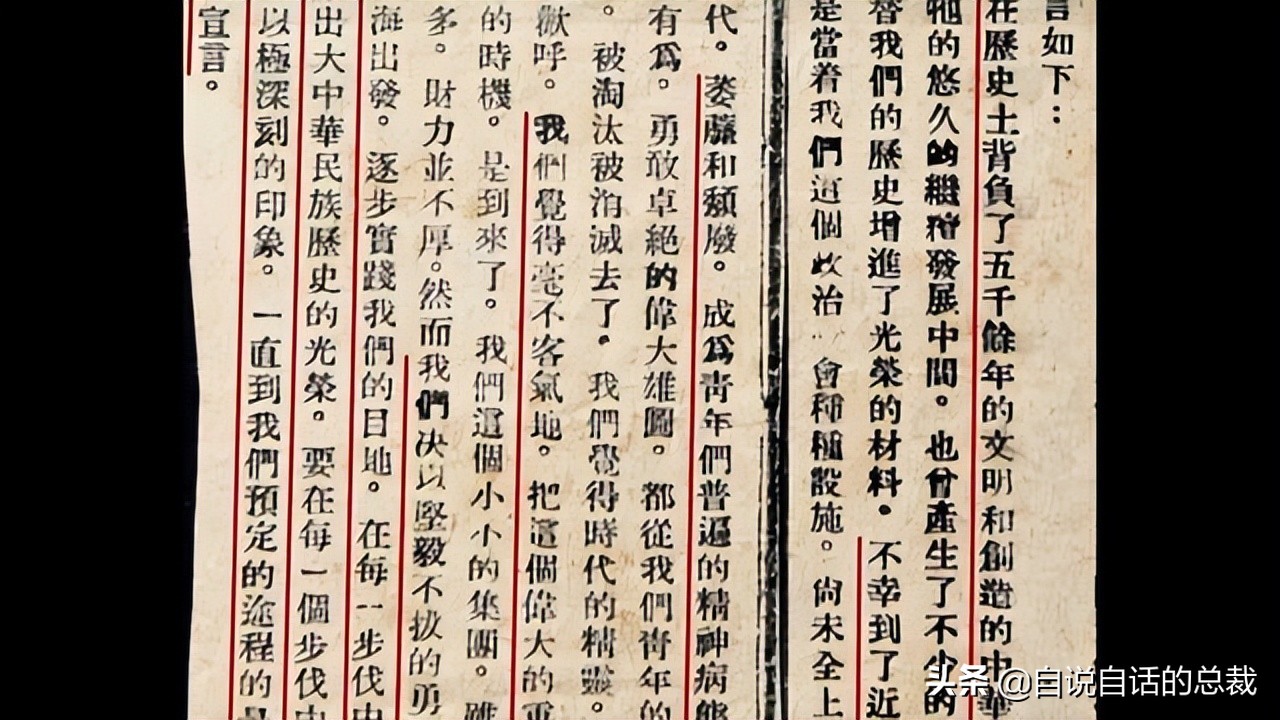 言如下：
在歷史上背負了五千餘年的文明和創造的中華
牠的悠久的繼續發展中間。也曾產生了不少的
替我們的歷史增進了光榮的材料。不幸到了近
是當着我們這個政治 會種種設施。尙未全上
代。萎靡和頽廢。成爲靑年們普遍的精神病態
有爲。勇敢卓絕的偉大雄圖。都從我們靑年的
。被淘汰被消滅去了。我們覺得時代的精靈。
歡呼。我們覺得毫不客氣地。把這個偉大的重
的時機。是到來了。我們這個小小的集團。雖
多。財力並不厚。然而我們决以堅毅不拔的勇
海出發。逐步實踐我們的目地。在每一步伐中
出大中華民族歷史的光榮。要在每一個步伐中
以極深刻的印象。一直到我們預定的途程的
宣言。
头条 @自说自话的总裁